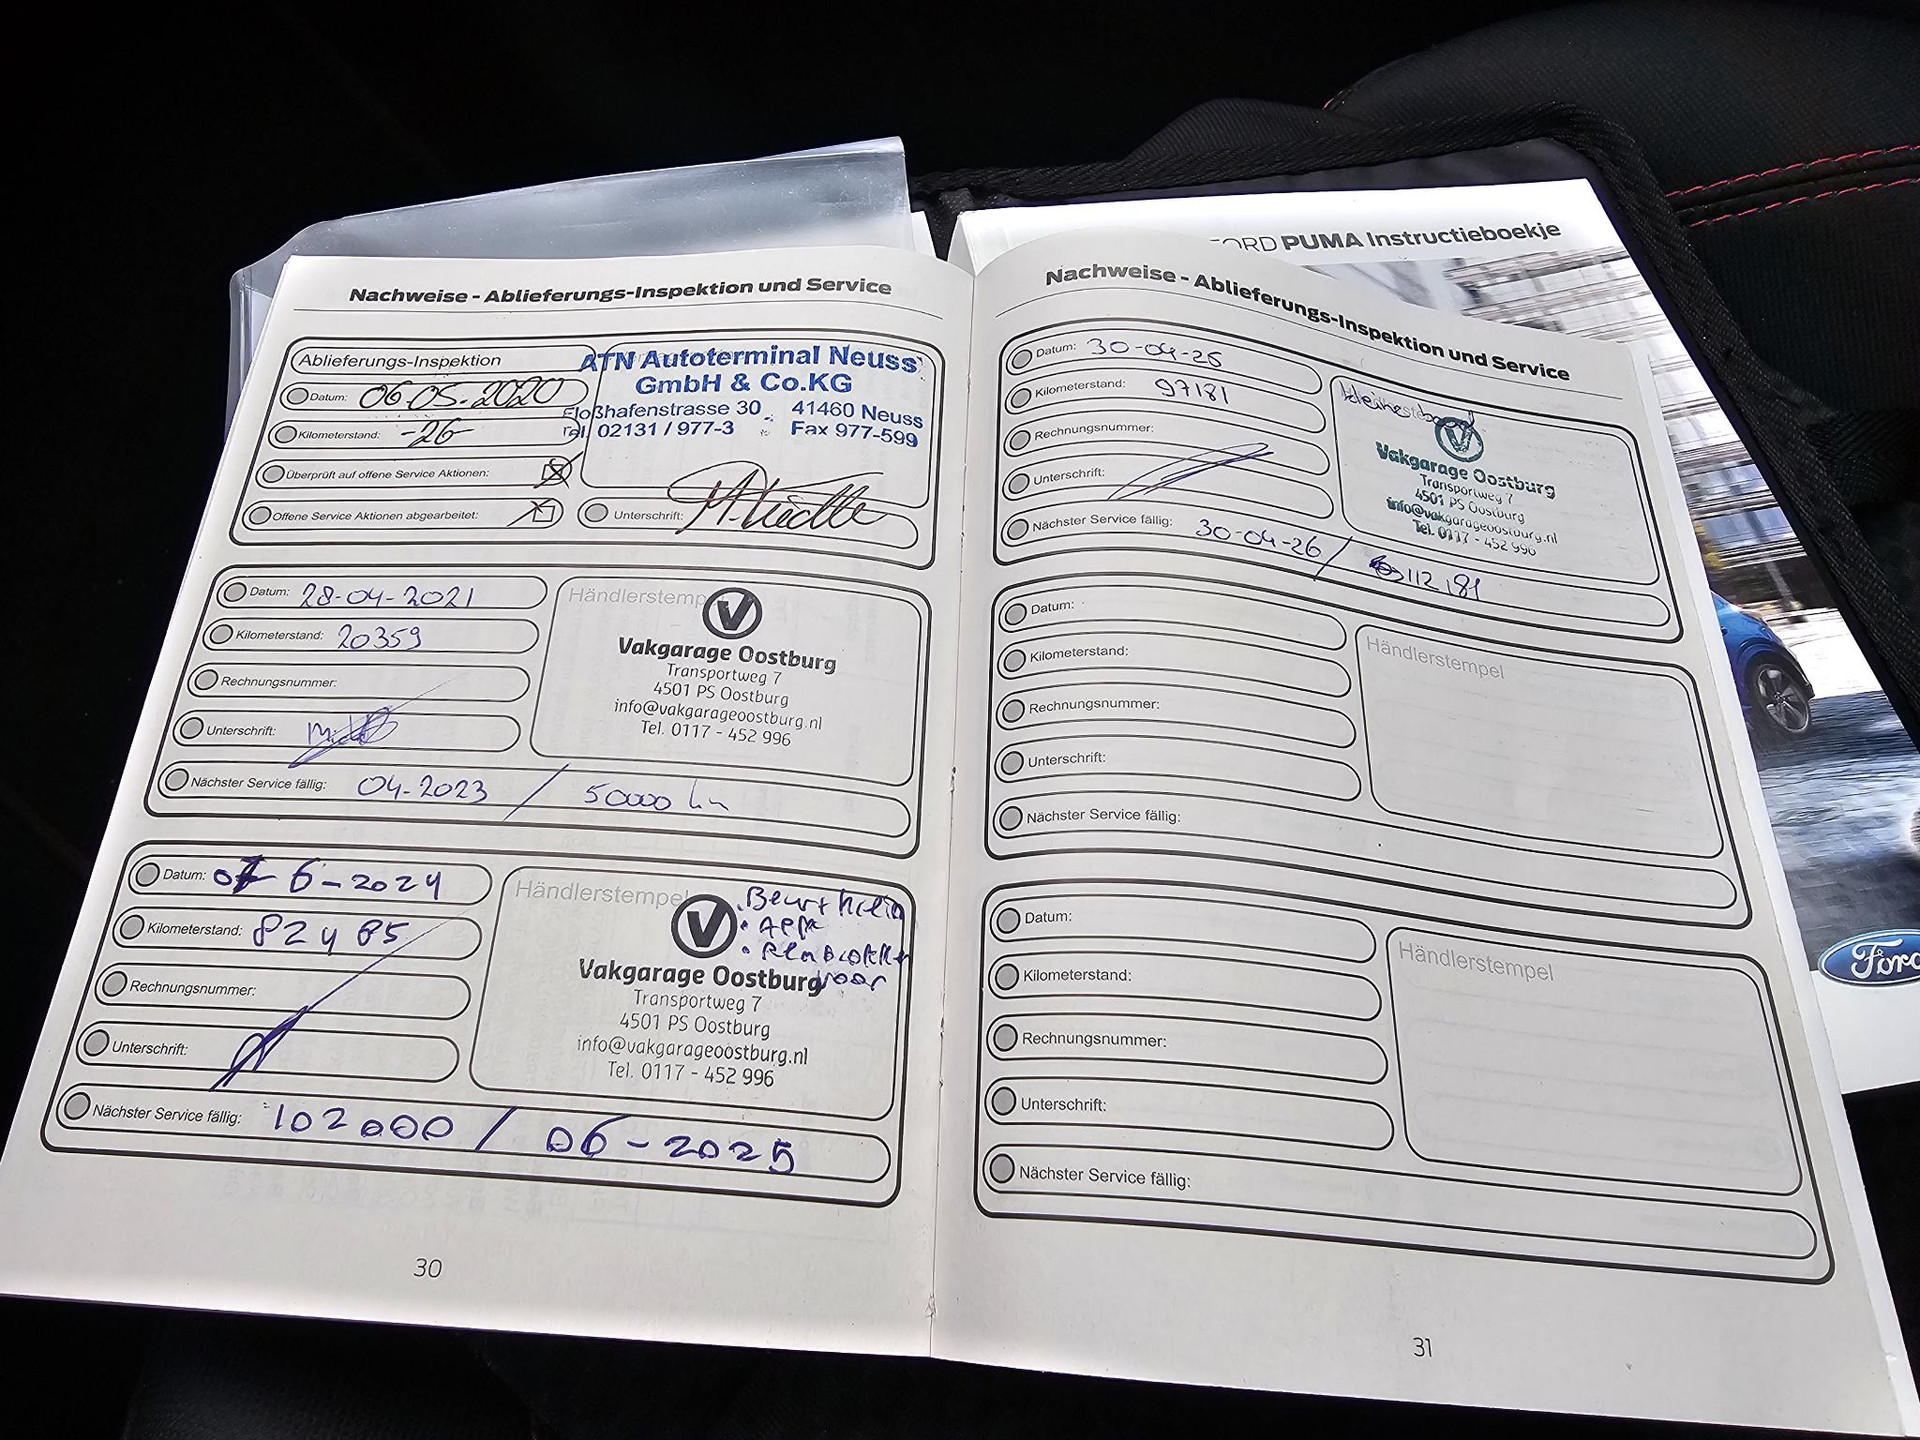 FORD PUMA Instructieboekje
Nachweise - Ablieferungs-Inspektion und Service
Ablieferungs-Inspektion
Datum: 06-05-2020
Kilometerstand: -26-
Überprüft auf offene Service Aktionen:
Offene Service Aktionen abgearbeitet:
ATN Autoterminal Neuss
GmbH & Co.KG
Floßhafenstrasse 30 41460 Neuss
Tel. 02131 / 977-3 Fax 977-599
Unterschrift:
Datum: 28-04-2021
Kilometerstand: 20359
Rechnungsnummer:
Unterschrift:
Nächster Service fällig: 04-2023 / 50000 km
Händlerstempel
Vakgarage Oostburg
Transportweg 7
4501 PS Oostburg
info@vakgarageoostburg.nl
Tel. 0117 - 452 996
Datum: 6-2024
Kilometerstand: 82485
Rechnungsnummer:
Unterschrift:
Nächster Service fällig: 102000 / 06-2025
Händlerstempel
. Beurt klein
• APK
• Remblokken
voor
Vakgarage Oostburg
Transportweg 7
4501 PS Oostburg
info@vakgarageoostburg.nl
Tel. 0117 - 452 996
30
Nachweise - Ablieferungs-Inspektion und Service
Datum: 30-04-25
Kilometerstand: 97181
Rechnungsnummer:
Unterschrift:
Nächster Service fällig: 30-04-26 / 112181
Vakgarage Oostburg
Transportweg 7
4501 PS Oostburg
info@vakgarageoostburg.nl
Tel. 0117 - 452 996
Datum:
Kilometerstand:
Rechnungsnummer:
Unterschrift:
Nächster Service fällig:
Händlerstempel
Datum:
Kilometerstand:
Rechnungsnummer:
Unterschrift:
Nächster Service fällig:
Händlerstempel
31
Ford